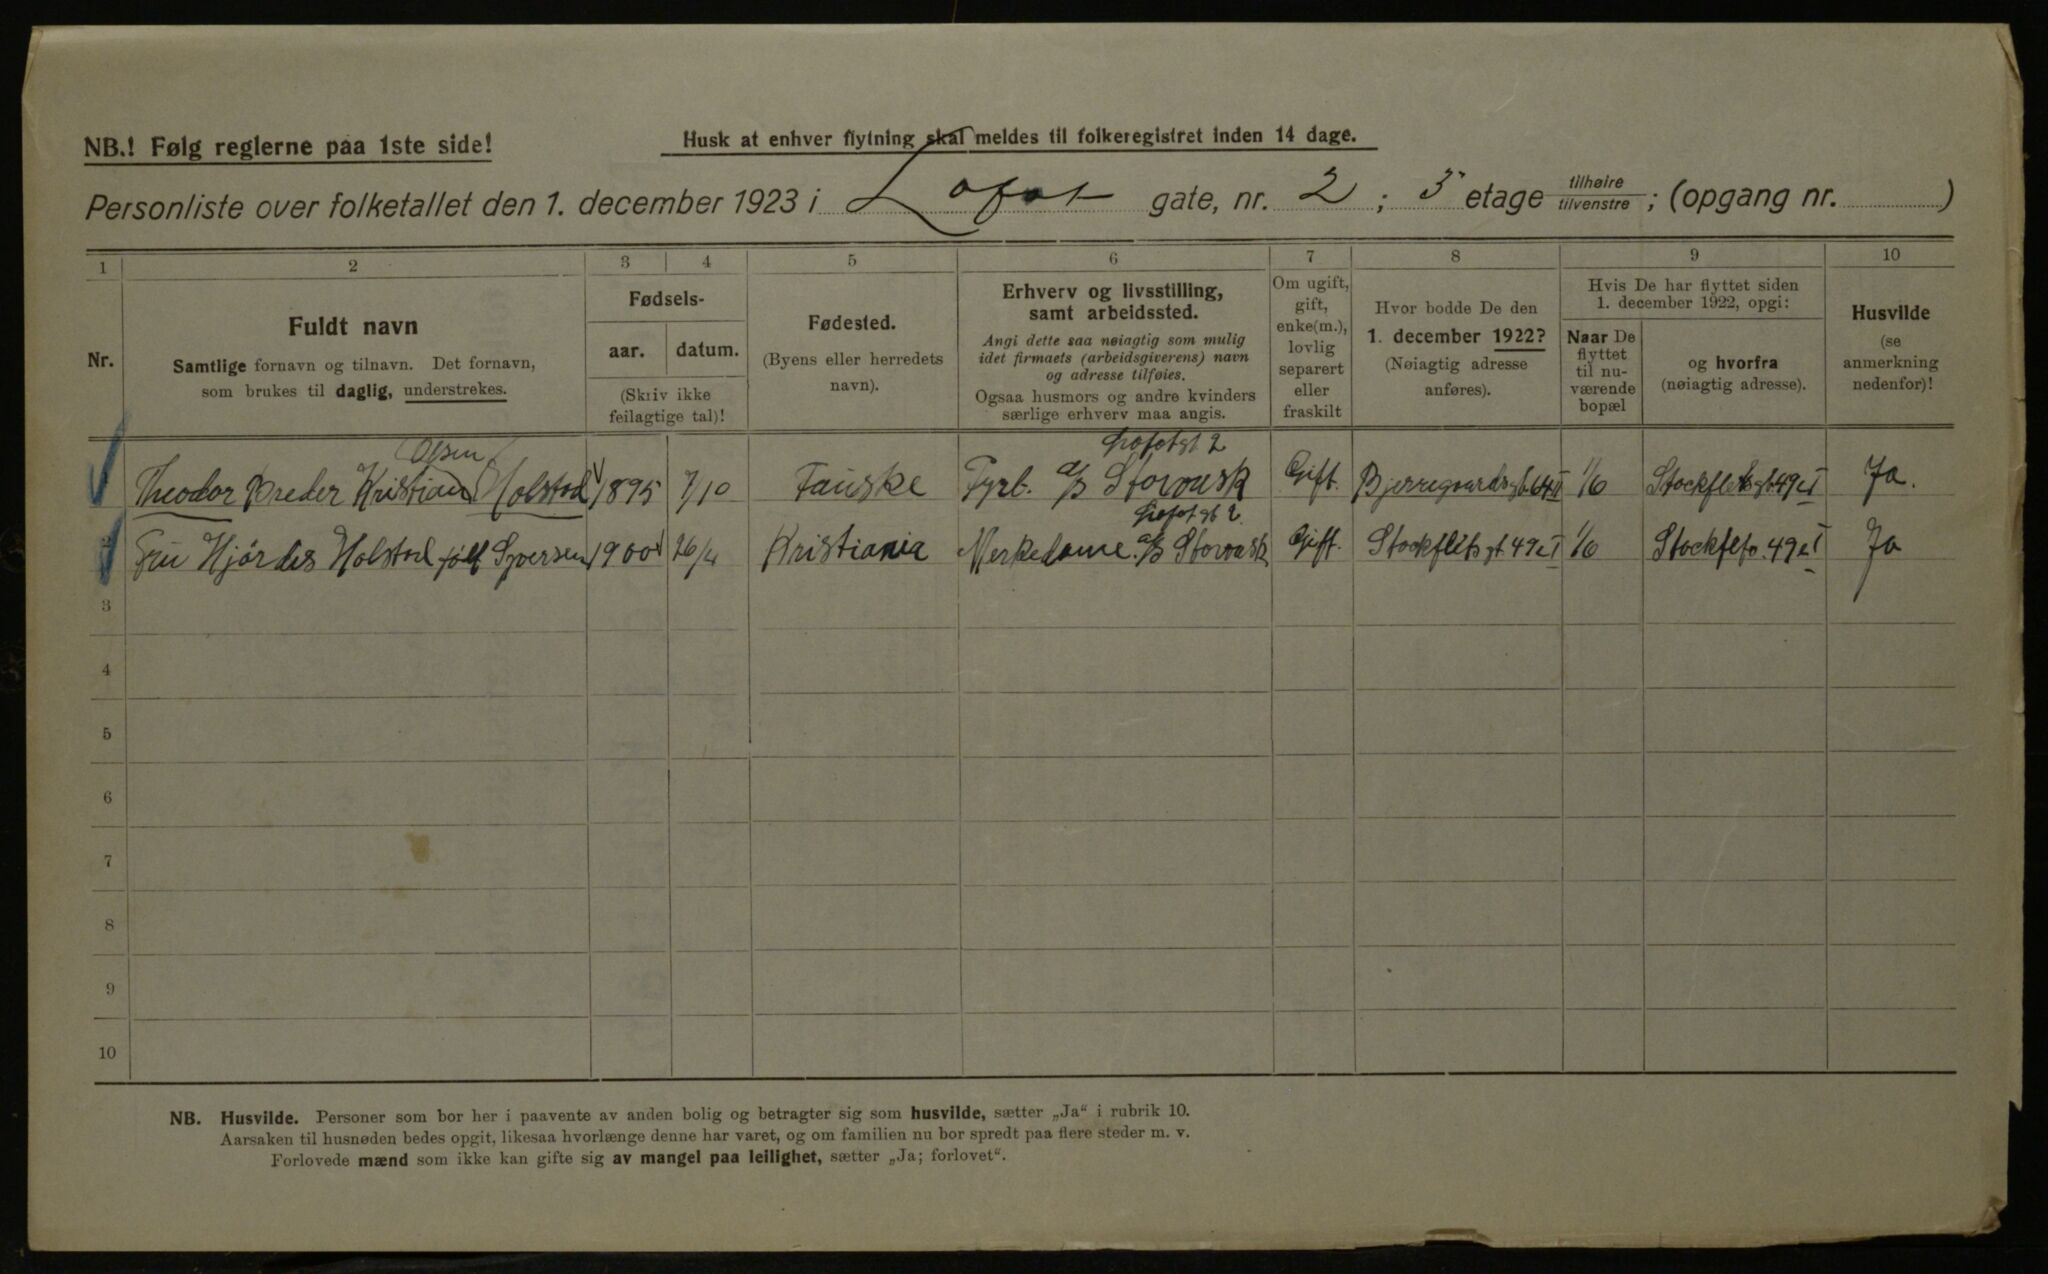 NB.! Følg reglerne paa 1ste side!
Husk at enhver flytning skal meldes til folkeregistret inden 14 dage.
Personliste over folketallet den 1. december 1923 i Lofot gate, nr. 2; 3 etage tilhøire tilvenstre; (opgang nr. )
1 2 3 4 5 6 7 8 9 10
Nr.
Fuldt navn
Samtlige fornavn og tilnavn. Det fornavn,
som brukes til daglig, understrekes.
Fødsels-
aar. datum.
(Skriv ikke
feilagtige tal)!
Fødested.
(Byens eller herredets
navn).
Erhverv og livsstilling,
samt arbeidssted.
Angi dette saa nøiagtig som mulig
idet firmaets (arbeidsgiverens) navn
og adresse tilføies.
Ogsaa husmors og andre kvinders
særlige erhverv maa angis.
Om ugift,
gift,
enke(m.),
lovlig
separert
eller
fraskilt
Hvor bodde De den
1. december 1922?
(Nøiagtig adresse
anføres).
Hvis De har flyttet siden
1. december 1922, opgi:
Naar De
flyttet
til nu-
værende
bopæl
og hvorfra
(nøiagtig adresse).
Husvilde
(se
anmerkning
nedenfor)!
Olsen Lofotgt 2
Theodor Preder Kristian Holstad 1895 7/10 Fauske Fyrb. a/s Stowask Gift. Bjerregaardsgt 64 II 1/6 Stockfletsgt 49 e I Ja.
Lofotgt 2
Fru Hjørdis Holstad født Syversen 1900 26/4 Kristiania Merkedame a/s Stowask Gift. Stockfletsgt 49 e I 1/6 Stockflts. 49 e I Ja
3
4
5
6
7
8
9
10
NB. Husvilde. Personer som bor her i paavente av anden bolig og betragter sig som husvilde, sætter „Ja“ i rubrik 10.
Aarsaken til husnøden bedes opgit, likesaa hvorlænge denne har varet, og om familien nu bor spredt paa flere steder m. v.
Forlovede mænd som ikke kan gifte sig av mangel paa leilighet, sætter „Ja; forlovet“.